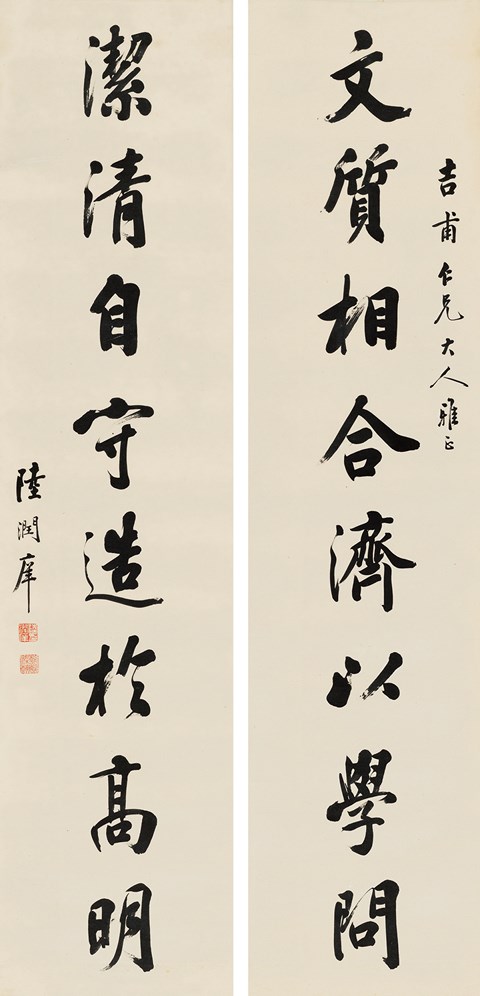 吉甫仁兄大人雅正
文質相合濟以學問
潔清自守造於高明
陸潤庠